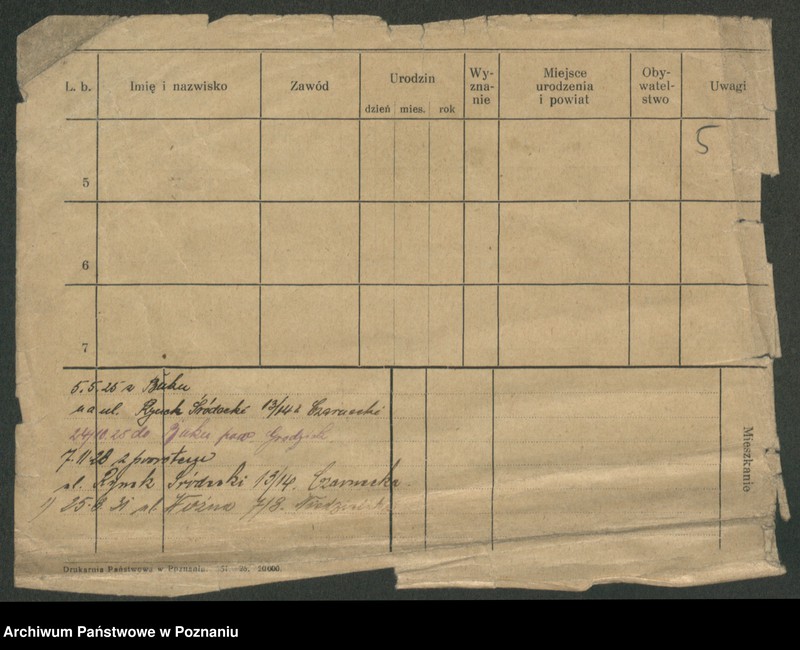 L. b. Imię i nazwisko Zawód Urodzin Wy-zna-nie Miejsce urodzenia i powiat Oby-watel-stwo Uwagi
dzień mies. rok
5
5
6
7
5.5.25 z Buku
na ul. Rynek Śródecki 13/14 Czarnecki
24/10.25 do Buku pow Grodzisk
7.11.28 z powrotem
ul. Rynek Śródecki 13/14. Czarnecka
1) 25.8.31 ul. Woźna 7/8.
Mieszkanie
Drukarnia Państwowa w Poznaniu. 20000.
Archiwum Państwowe w Poznaniu